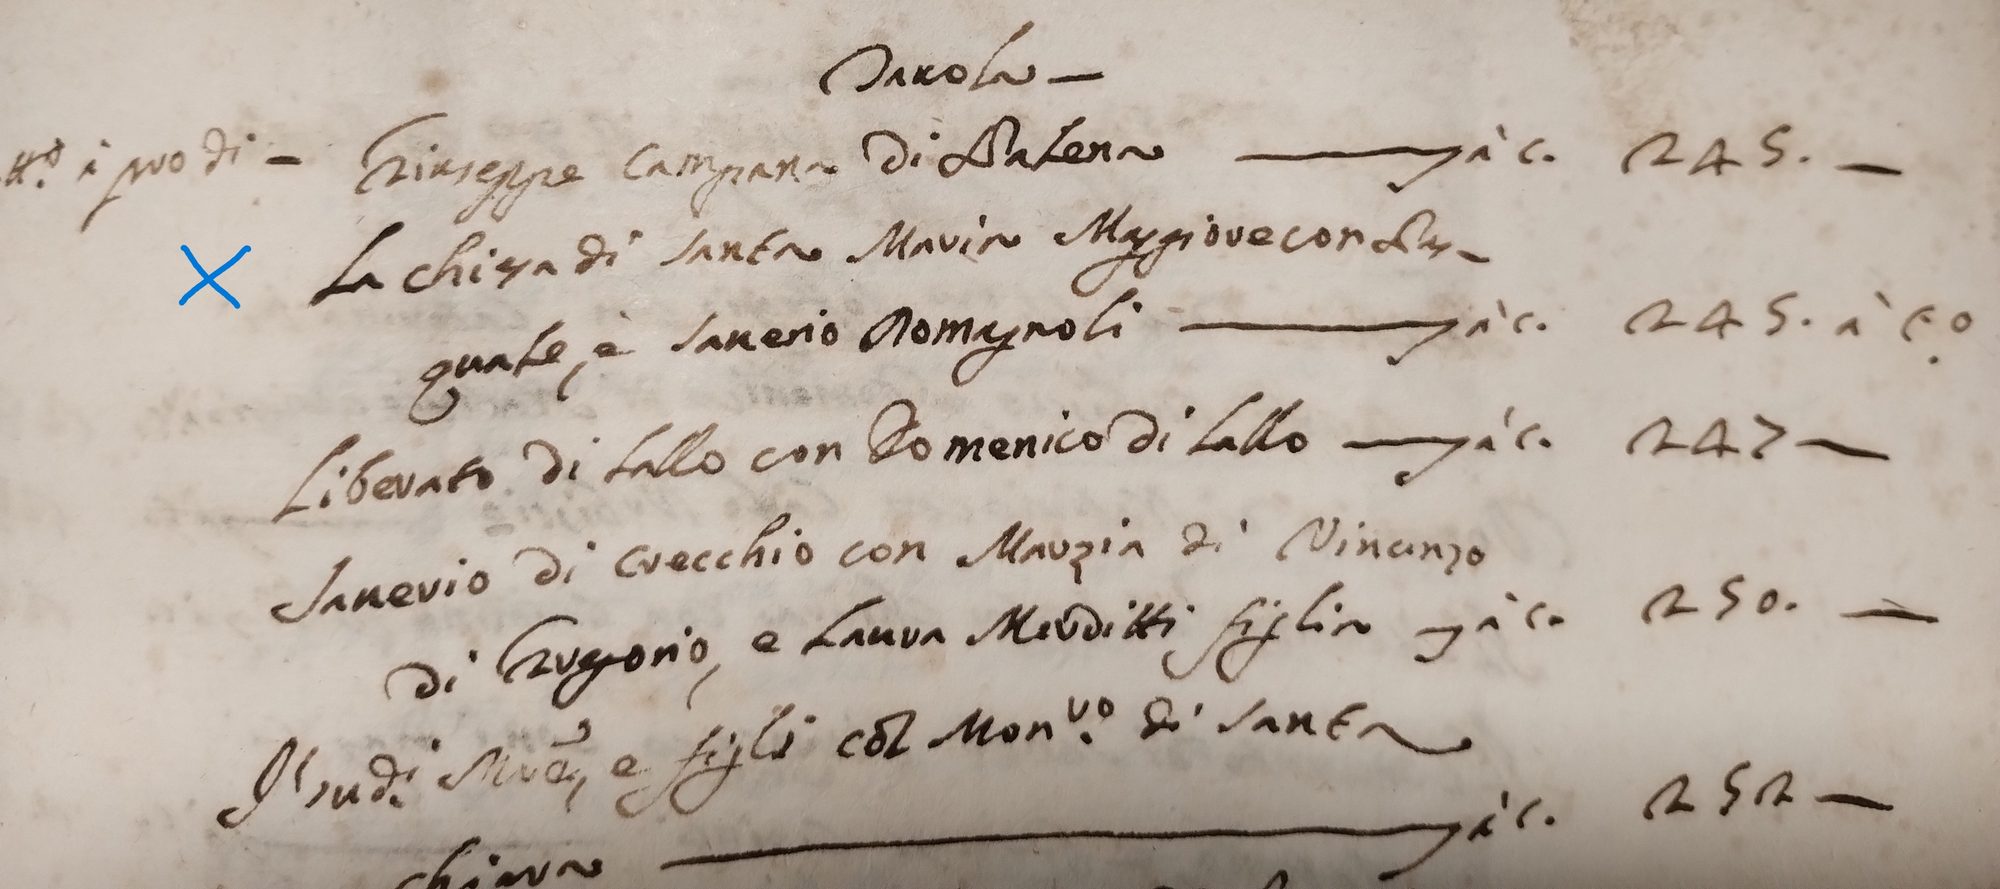 Tauola —
tt.º à pro di — Giuseppe Campana di Palena — à c. 245. —
La chiesa di Santa Maria Maggiore con Pas-
quale, è Sauerio Romagnoli — à c. 245. à t.º
Liberato di Lallo con Domenico di Lallo — à c. 247 —
Sauerio di Crecchio con Marzia di Vincenzo
di Gregorio, e Laura Merlitti figlia — à c. 250. —
Prud: Mrē, e figli col Mon.ro di Santa
Chiara — à c. 252 —